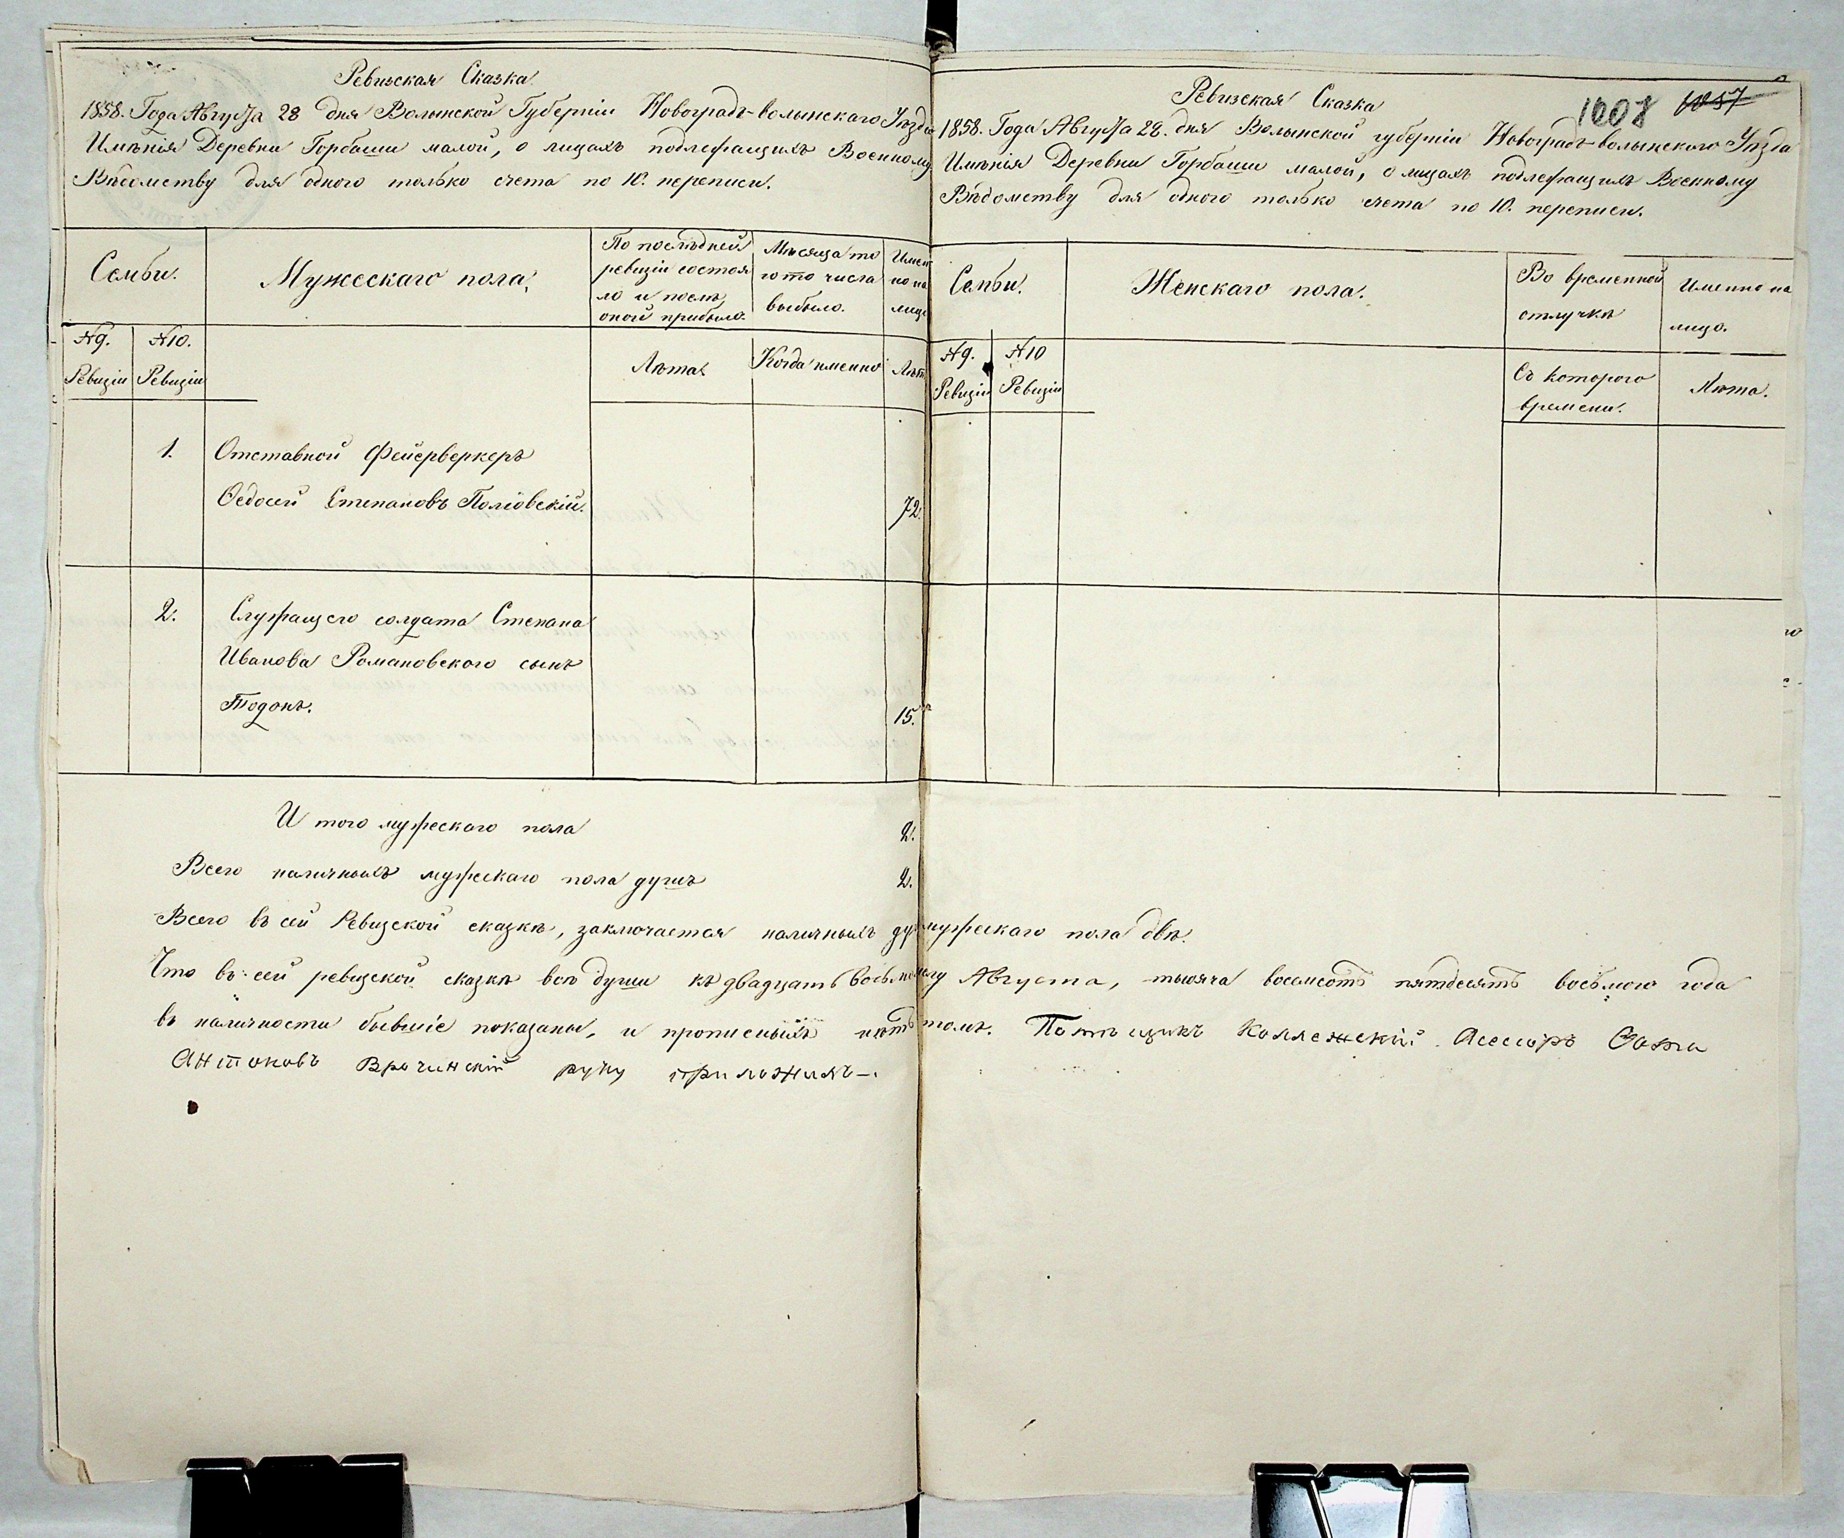 Ревизская Сказка
1858. Года Августа 28 дня Волынской Губерніи Новоградъ-волынскаго Уѣзда
Имѣнія Деревни Горбаши малой, о лицахъ подлежащихъ Военному
Вѣдомству для одного только счета по 10. переписи.
Семьи.
Мужескаго пола.
По послѣдней
ревизіи состоя
ло и послѣ
оной прибыло.
Мѣсяца то
го то числа
выбыло.
Имен
но на
лицо
№ 9.
Ревизіи
№ 10.
Ревизіи
Лѣта.
Когда именно
Лѣта
1.
Отставной Фейерверкеръ
Ѳедосей Степановъ Поліовскій.
72.
2.
Служащего солдата Степана
Иванова Романовского сынъ
Тодонъ.
15.
И того мужескаго пола 2.
Всего наличныхъ мужескаго пола душъ 2.
Ревизская Сказка
1008 1057
1858. Года Августа 28. дня Волынской губерніи Новоградъ-волынского Уѣзда
Имѣнія Деревни Горбаши малой, о лицахъ подлежащихъ Военному
Вѣдомству для одного только счета по 10. переписи.
Семьи.
Женскаго пола.
Во временной
отлучкѣ
Именно на
лицо.
№ 9.
Ревизіи
№ 10
Ревизіи
Съ которого
времени.
Лѣта.
Всего въ сей Ревизской сказкѣ, заключается наличныхъ ду мужескаго пола двѣ.
Что въ сей ревизской сказкѣ всѣ души къ двадцать восьмому Августа, тысяча восемсотъ пятдесятъ восьмого года
въ наличности бывшіе показаны, и прописныхъ нѣтъ томъ. Помѣщикъ Коллежскій Асессоръ
Антоновъ руку приложилъ.